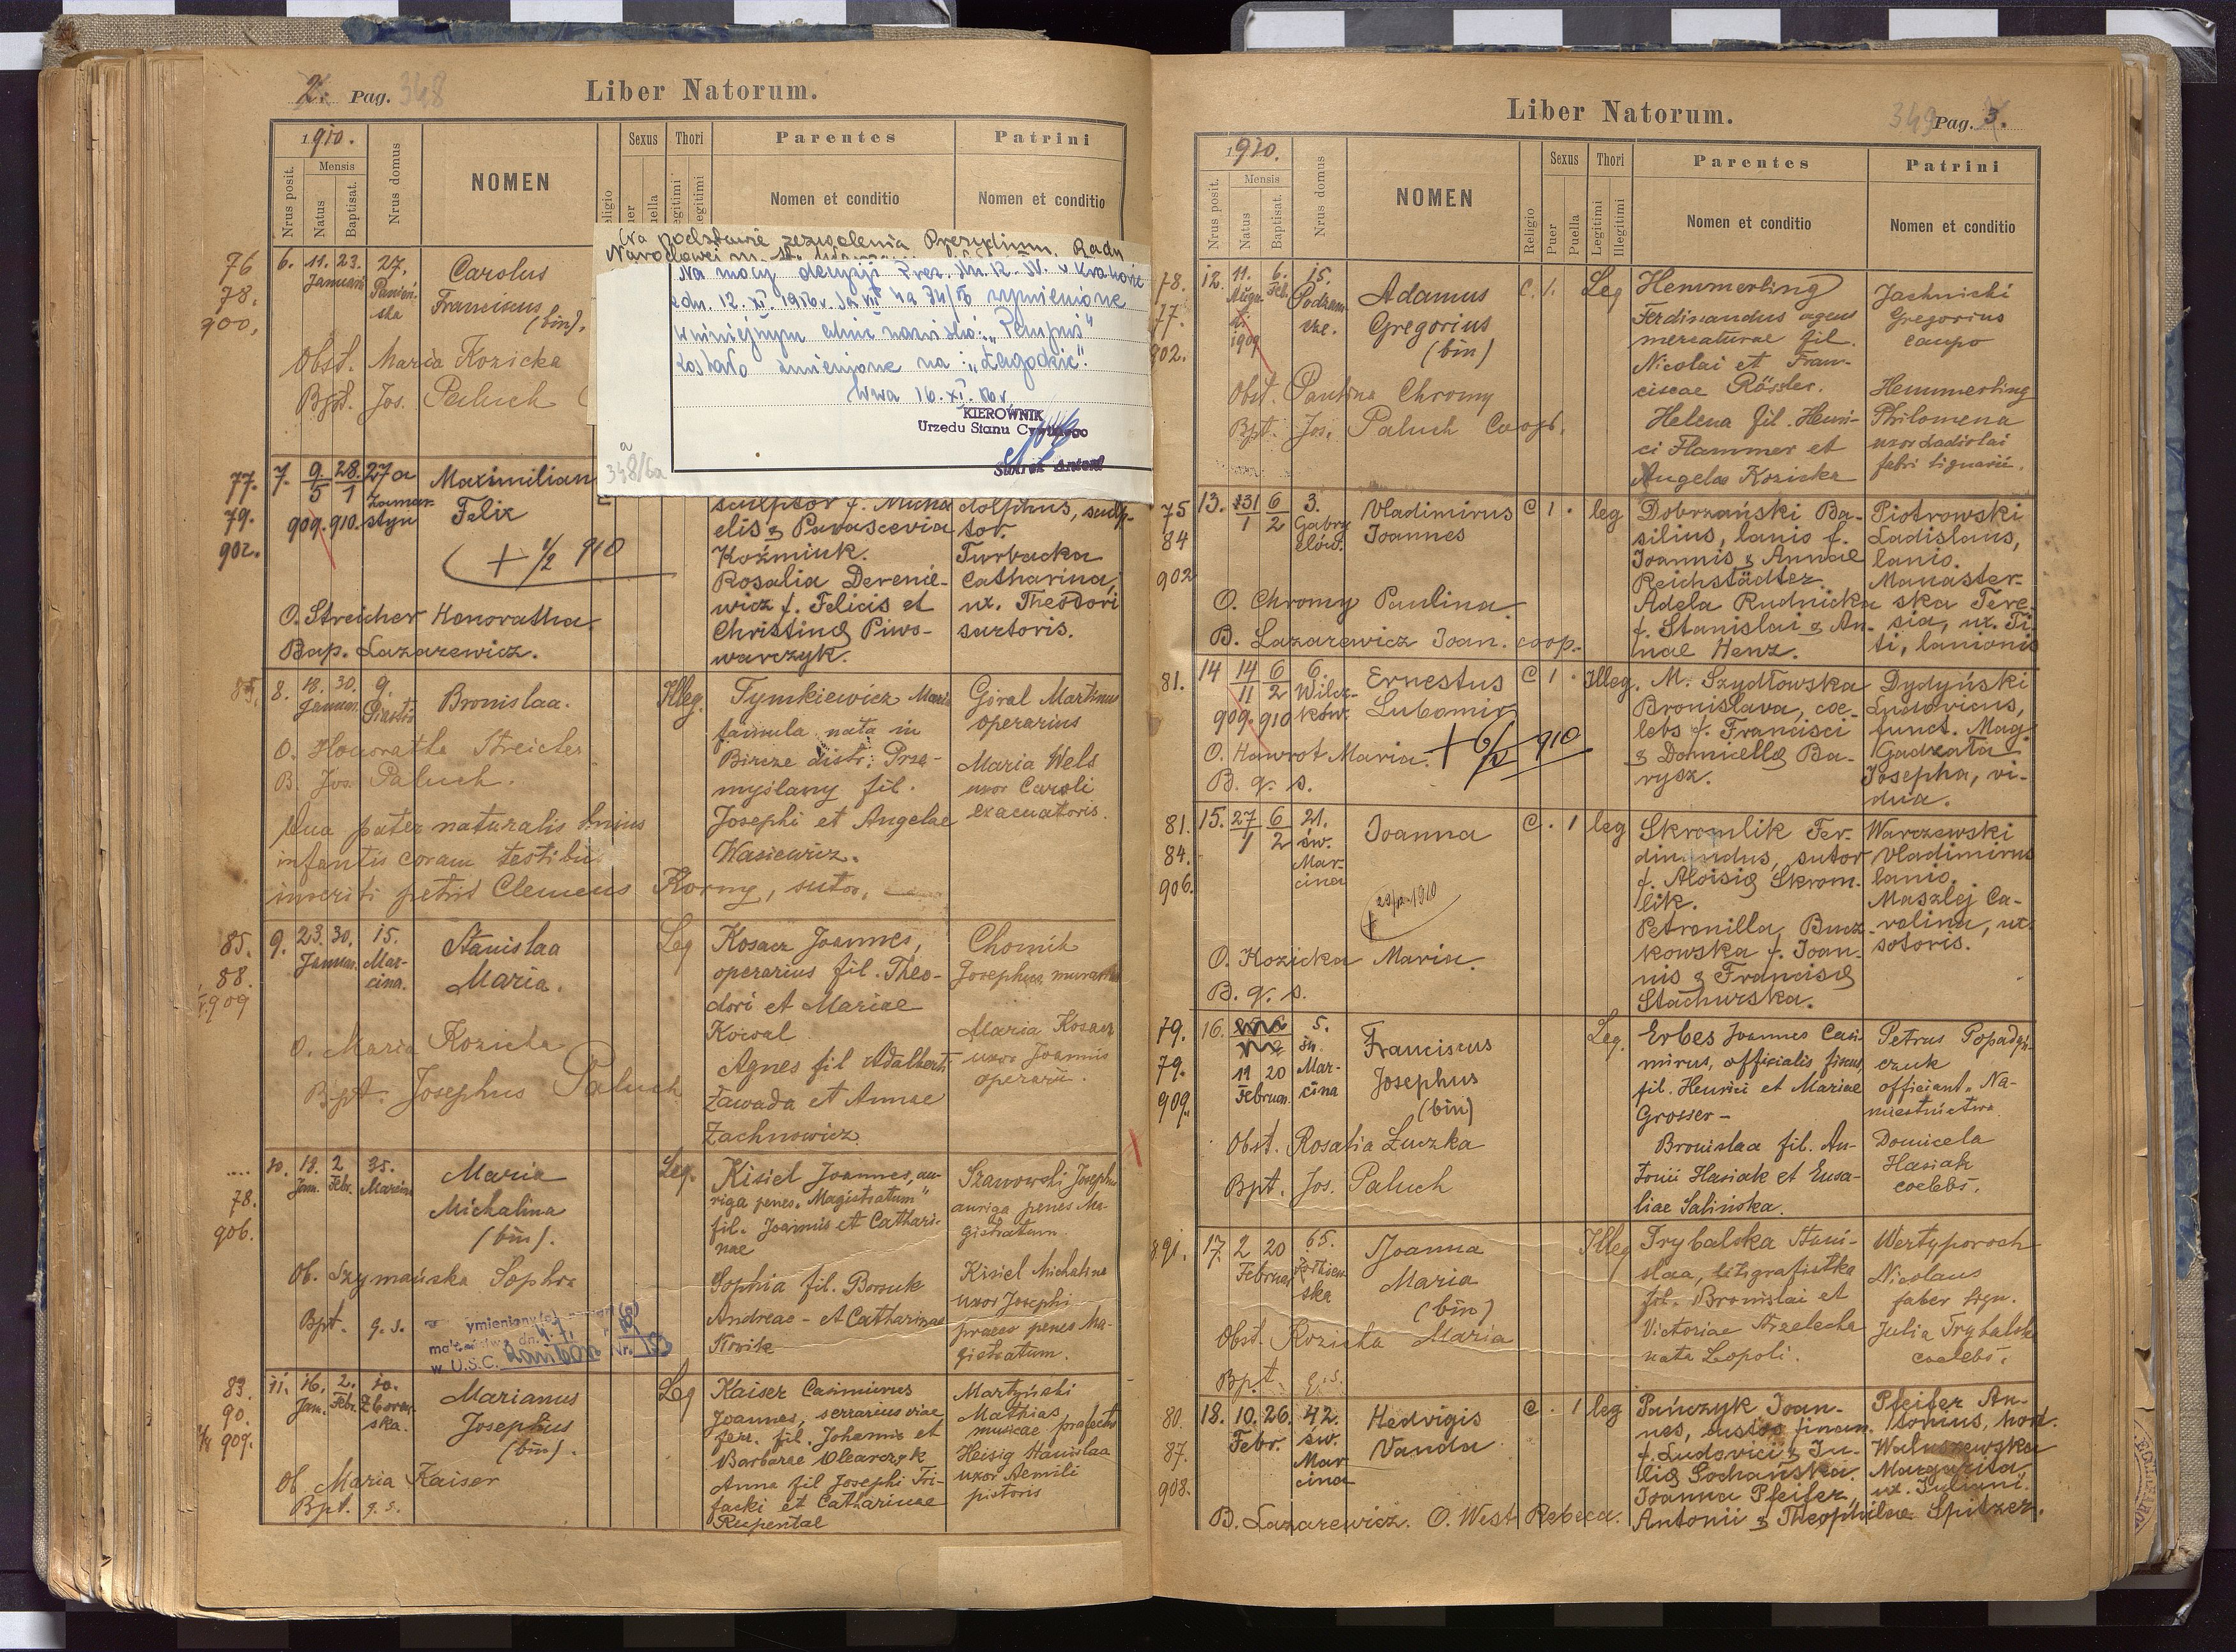 2. Pag. 348
Liber Natorum.
1910.
Nrus posit.
Mensis
Natus
Baptisat.
Nrus domus
NOMEN
Sexus
Thori
Parentes
Nomen et conditio
Patrini
Nomen et conditio
76
78.
900.
6. 11. 23. 27.
Januar
Carolus
Franciscus
(bin).
Obst. Maria Kozicka
Bpt. Jos. Paluch
Na podstawie zezwolenia Prezydium Rady
Narodowej m.
Na mocy decyzji Prez.
zdn. 12. XI.
w niniejszym akcie nazwisko:
zostało zmienione na: „Łagodzic".
KIEROWNIK
Urzędu Stanu Cywilnego
348/6a
77.
79.
902.
7. 9/5 28/1 27a
909. 910.
Maximilian
Felix
+ 1/2 910
O. Streicher Honoratha.
Bap. Lazarewicz.
sculptor f. Micha
elis & Parascevia
Koźmiuk.
Rosalia Derenie-
wicz f. Felicis et
Christinae Piwo-
warczyk.
dolphus, sculp-
tor.
Turbacka
Catharina,
ux. Theodori
sartoris.
85.
8. 18. 30. 9.
Januar.
Bronislaa.
Illeg.
Tymkiewicz Maria
famula nata in
Bircze distr: Prze-
myślany fil.
Josephi et Angelae
Wasiewicz.
Góral Martinus
operarius
Maria Wels
uxor Caroli
O. Honoratha Streicher
B. Jos. Paluch.
Qua pater naturalis huius
infantis coram testibus
inscribi petiit Clemens Korny, sutor,
85.
88.
909
9. 23. 30. 15.
Januar. Mar-
cina.
Stanislaa
Maria.
Leg
Kosacz Joannes,
operarius fil. Theo-
dori et Mariae
Kowal
Agnes fil Adalberti
Zawada et Annae
Zachnowicz
Chomik
Maria Kosacz
uxor Joannis
operarii.
O. Maria Kozicka
Bpt. Josephus Paluch
78.
906.
10. 18. 2 35.
Jan. Febr. Marcina
Maria
Michalina
(bin).
Leg.
Kisiel Joannes, au-
riga penes „Magistratum"
fil. Joannis et Cathari-
nae
Sophia fil. Boruk
Andreae - et Catharinae
Szanowski Josephus
auriga penes Ma-
gistratum
Kisiel Michalina
uxor Josephi
praeco penes Ma-
gistratum.
Ob. Szymańska Sophia
Bpt. q. s.
w U.S.C.
83.
90.
909.
11. 16. 2. 10.
Jan. Febr. Zborow-
ska.
Marianus
Josephus
(bin).
Leg
Kaiser Casimirus
Joannes, serrarius viae
ferr. fil. Johannis et
Barbarae Olearczyk
Anna fil Josephi Tri-
facki et Catharinae
Rupental
Martyński
Mathias
musicae prafectus
Heisig Stanislaa
uxor Aemili
pistoris
Ob. Maria Kaiser
Bpt. q. s.
Liber Natorum.
349 Pag. 3.
1910.
Nrus posit.
Mensis
Natus
Baptisat.
Nrus domus
NOMEN
Religio
Sexus
Puer
Puella
Thori
Legitimi
Illegitimi
Parentes
Nomen et conditio
Patrini
Nomen et conditio
78.
77.
902.
12. 11. 6. 15.
Augu
sti
1909
Feb.
Podzam
cze.
Adamus
Gregorius
(bin)
C. 1. Leg
Hemmerling
Ferdinandus agens
mercaturae fil.
Nicolai et Fran-
ciscae Rössler.
Helena fil. Henri-
ci Flammer et
Angelae Kozicka
Jachnicki
Gregorius
caupo
Hemmerling
Philomena
uxor Ladislai
fabri lignarii.
Obst. Paulina Chromy
Bpt. Jos. Paluch Coop.
75
84
902
13. 31/1 6/2 3.
Gabry
elów.
Vladimirus
Joannes
C 1 . leg
Dobrzański Ba-
silius, lanio f.
Joannis & Annae
Reichstädter
Adela Rudnicka
f. Stanislai & An-
nae Henz.
Piotrowski
Ladislaus,
lanio.
Manaster-
ska Tere-
sia, ux. Ti-
ti, lanionis
O. Chromy Paulina
B. Lazarewicz Joan. coop.
81.
14 14/11 6/2 6.
909. 910
Wilcz-
ków.
Ernestus
Lubomir
C 1 . Illeg.
M. Szydłowska
Bronislava, coe-
lebs f. Francisci
& Domicellae Ba-
rysz.
Dydyński
Ludovicus,
funct. Mag.
Gadzata
Josepha, vi-
dua.
O. Hawrot Maria. + 6/2 910
B. q. s.
81.
84.
906.
15. 27/1 6/2 21.
św.
Mar-
cina
Joanna
C . 1 leg
Skromlik Fer-
dinandus, sutor
f. Aloisiae Skrom-
lik.
Petronilla Bucz-
kowska f. Joan-
nis & Franciscae
Stachurska.
Warczewski
Vladimirus
lanio.
Maszlej Ca-
rolina, ux.
sutoris.
O. Kozicka Maria.
B. q. s.
79.
79.
909.
16. 5.
św.
11 20 Mar-
Februar. cina
Franciscus
Josephus
(bin)
Leg.
Erbes Joannes Casi
mirus, officialis fiscus,
fil. Henrici et Mariae
Grosser -
Bronislaa fil. An-
tonii Hasiak et Eusa-
liae Salińska.
Petrus Popadyń-
czuk
officiant. Na-
miestnictwa
Domicela
Hasiak
coelebs.
Obst. Rosalia Łuczka
Bpt. Jos. Paluch
17. 2 20 65.
Februar
Żółkiew
ska
Joanna
Maria
(bin)
Illeg
Trybalska Stani-
slaa, litografistka
fil. Bronislai et
Victoriae Strzelecka
nata Leopoli.
Wertyporoch
Nicolaus
faber lign.
Julia Trybalska
coelebs.
Obst. Kozicka Maria
Bpt. q. s.
80.
87.
908.
18. 10. 26. 42.
Febr. św.
Mar
cina
Hedvigis
Vanda
C . 1 leg
Pańczyk Joan-
nes, custos finan.
f. Ludovici & Ju-
liae Sochańska.
Joanna Pfeifer,
Antonii & Theophilae Spitzer.
Pfeifer An-
tonius, hort.
Waluszewska
Margarita
ux. Juliani.
B. Lazarewicz. O. West Rebeca.